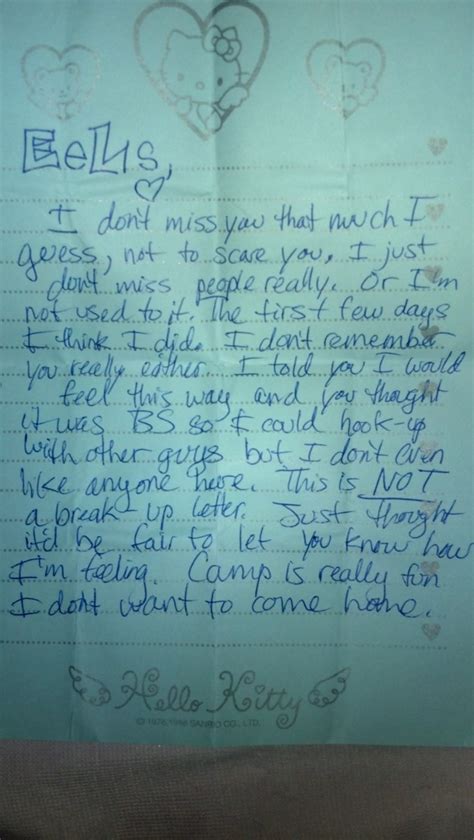 Eells,
I don't miss you that much I
guess, not to scare you. I just
don't miss people really. Or I'm
not used to it. The first few days
I think I did. I don't remember
you really eather. I told you I would
feel this way and you thought
it was BS so I could hook-up
with other guys but I don't even
like anyone here. This is NOT
a break-up letter. Just thought
it'd be fair to let you know how
I'm feeling. Camp is really fun
I don't want to come home.
Hello Kitty
© 1976, 1998 SANRIO CO., LTD.